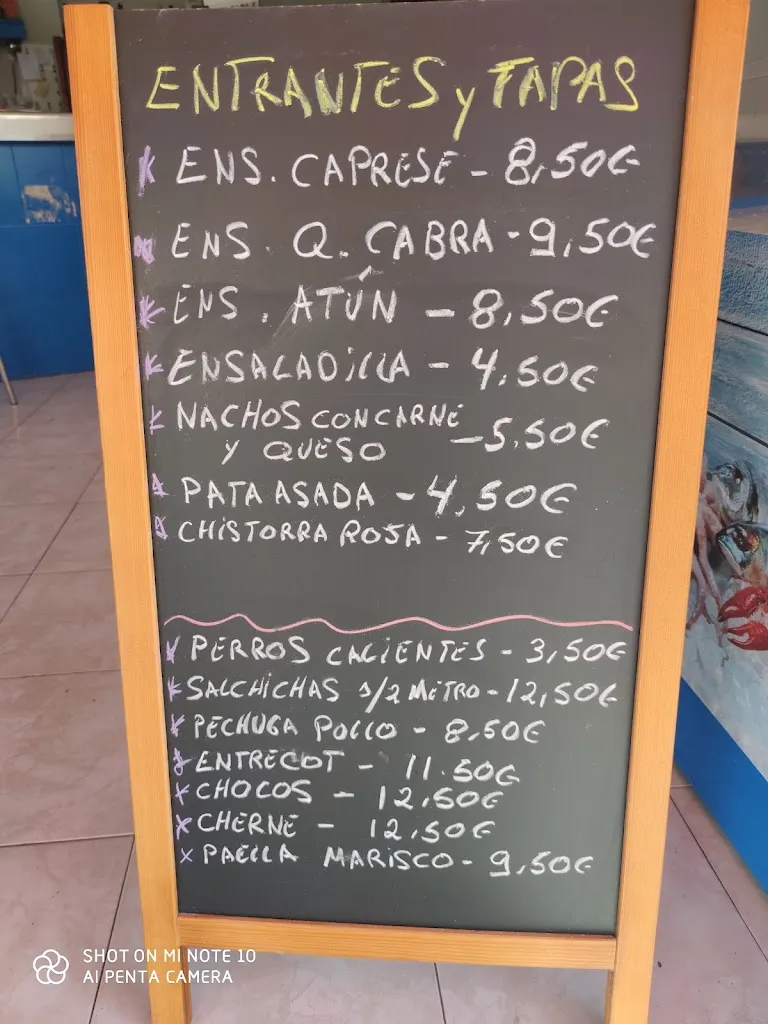 ENTRANTES y TAPAS
* ENS. CAPRESE - 8,50€
* ENS. Q. CABRA - 9,50€
* ENS. ATÚN - 8,50€
* ENSALADILLA - 4,50€
* NACHOS CON CARNE
Y QUESO - 5,50€
* PATA ASADA - 4,50€
* CHISTORRA ROJA - 7,50€
* PERROS CALIENTES - 3,50€
* SALCHICHAS 1/2 METRO - 12,50€
* PECHUGA POLLO - 8,50€
* ENTRECOT - 11.50€
* CHOCOS - 12,50€
* CHERNE - 12,50€
x PAELLA MARISCO - 9,50€
SHOT ON MI NOTE 10
AI PENTA CAMERA